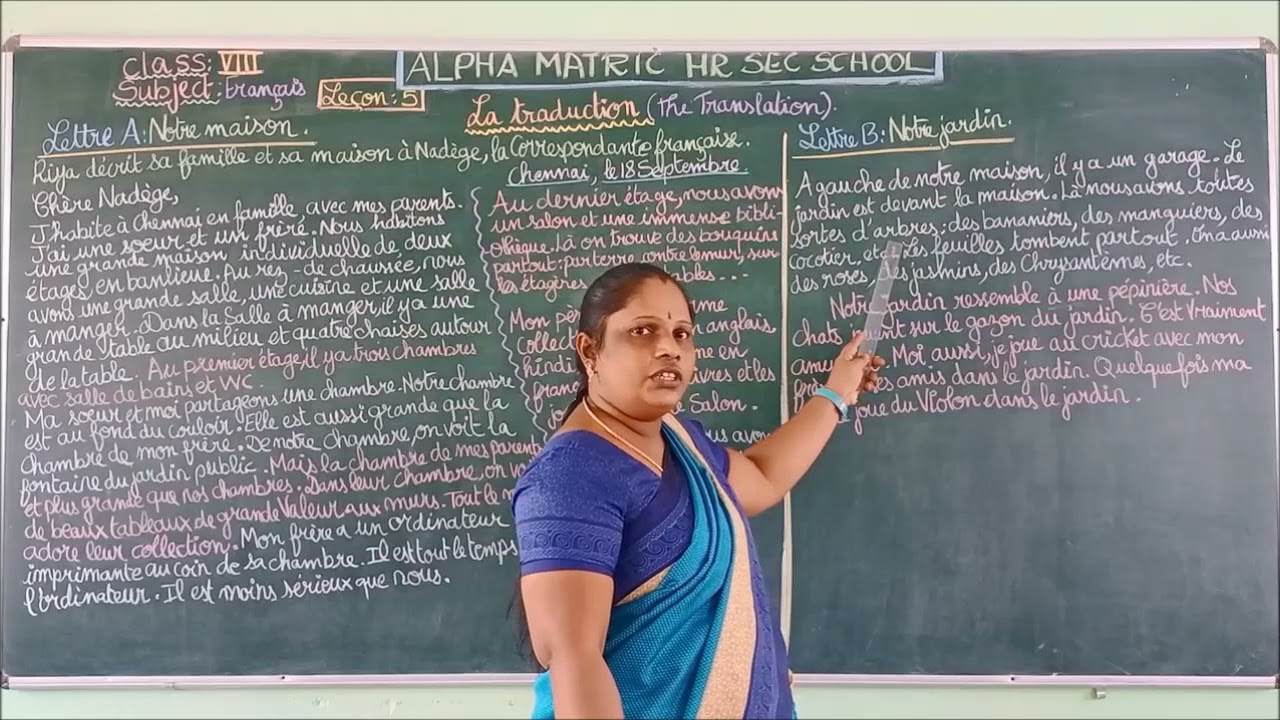 Class: VIII
Subject: Français
Leçon: 5
ALPHA MATRIC HR SEC SCHOOL
La traduction (the Translation).
Lettre A: Notre maison.
Riya décrit sa famille et sa maison à Nadège, la Correspondante française.
Chennai, le 18 Septembre
Chère Nadège,
J'habite à Chennai en famille, avec mes parents.
J'ai une soeur et un frère. Nous habitons
une grande maison individuelle de deux
étages en banlieue. Au rez-de chaussée, nous
avons une grande salle, une cuisine et une salle
à manger. Dans la Salle à manger, il y a une
grande table au milieu et quatre chaises autour
de la table. Au premier étage, il y a trois chambres
avec salle de bains et WC.
Ma soeur et moi partageons une chambre. Notre chambre
est au fond du couloir. Elle est aussi grande que la
Chambre de mon frère. De notre Chambre, on voit la
fontaine du jardin public. Mais la chambre de mes parents
et plus grande que nos chambres. Dans leur chambre, on
de beaux tableaux de grande Valeur aux murs. Tout le
adore leur collection. Mon frère a un ordinateur
imprimante au coin de sa chambre. Il est tout le temps
l'ordinateur. Il est moins sérieux que nous.
Au dernier étage, nous avons
un salon et une immense bibli-
othèque. Là on trouve des bouquins
partout: par terre, contre le mur, sur
les étagères ables...
Mon pè me
collect n anglais
hindi me en
franç ivres et les
jo Salon.
us avon
Lettre B: Notre jardin.
A gauche de notre maison, il y a un garage. Le
jardin est devant la maison. Là nous avons toutes
sortes d'arbres: des bananiers, des manguiers, des
Cocotier, etc. Les feuilles tombent partout. On a aussi
des roses, des jasmins, des Chrysantèmes, etc.
Notre jardin ressemble à une pépinière. Nos
chats nt sur le gazon du jardin. C'est Vraiment
amu Moi aussi, je joue au cricket avec mon
frè es amis dans le jardin. Quelquefois ma
joue du Violon dans le jardin.